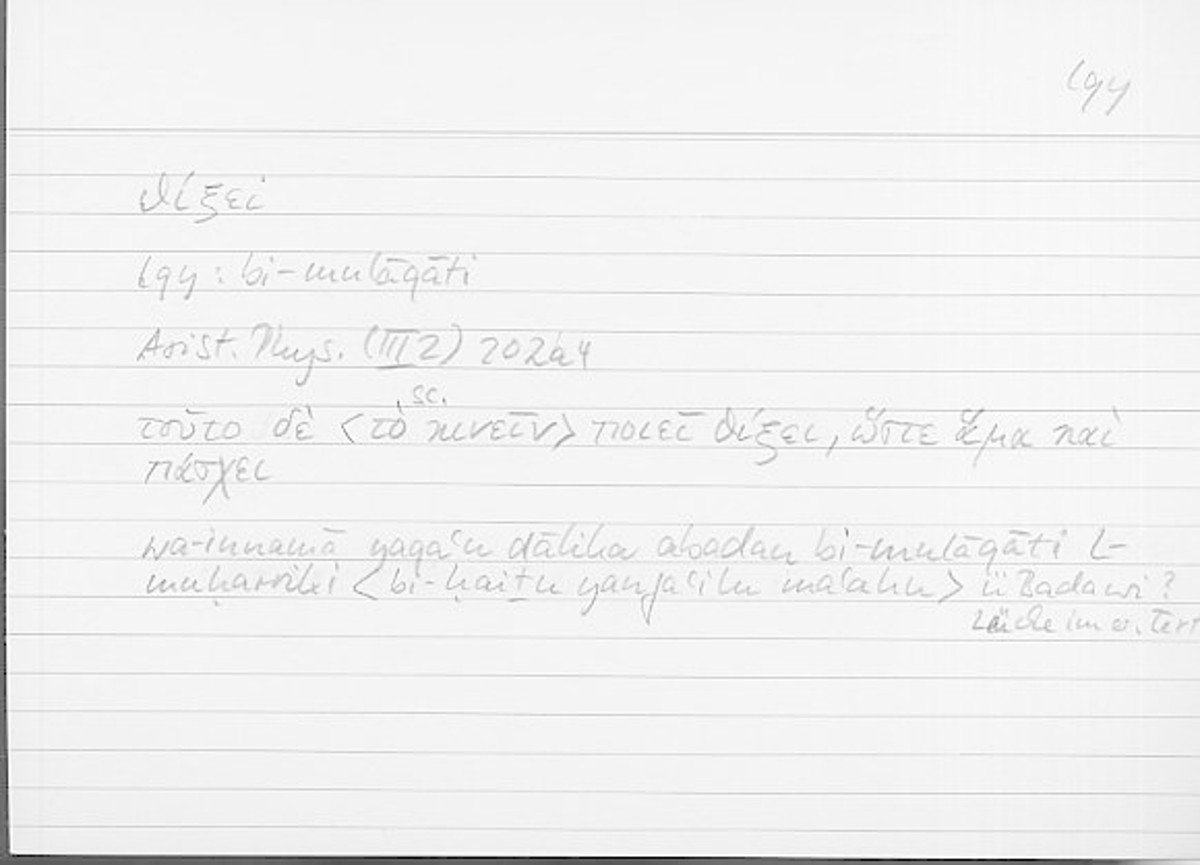 lqy
θίξει
lqy : bi-mulāqāti
Arist. Phys. (III 2) 202a4
sc.
τοῦτο δὲ <τὸ κινεῖν> ποιεῖ θίξει, ὥστε ἅμα καὶ
πάσχει
wa-innamā yaqaʿu ḏālika abadan bi-mulāqāti l-
muḥarriki <bi-ḥaiṯu yanfaʿilu maʿahu> ii Badawi ?
Lücke im